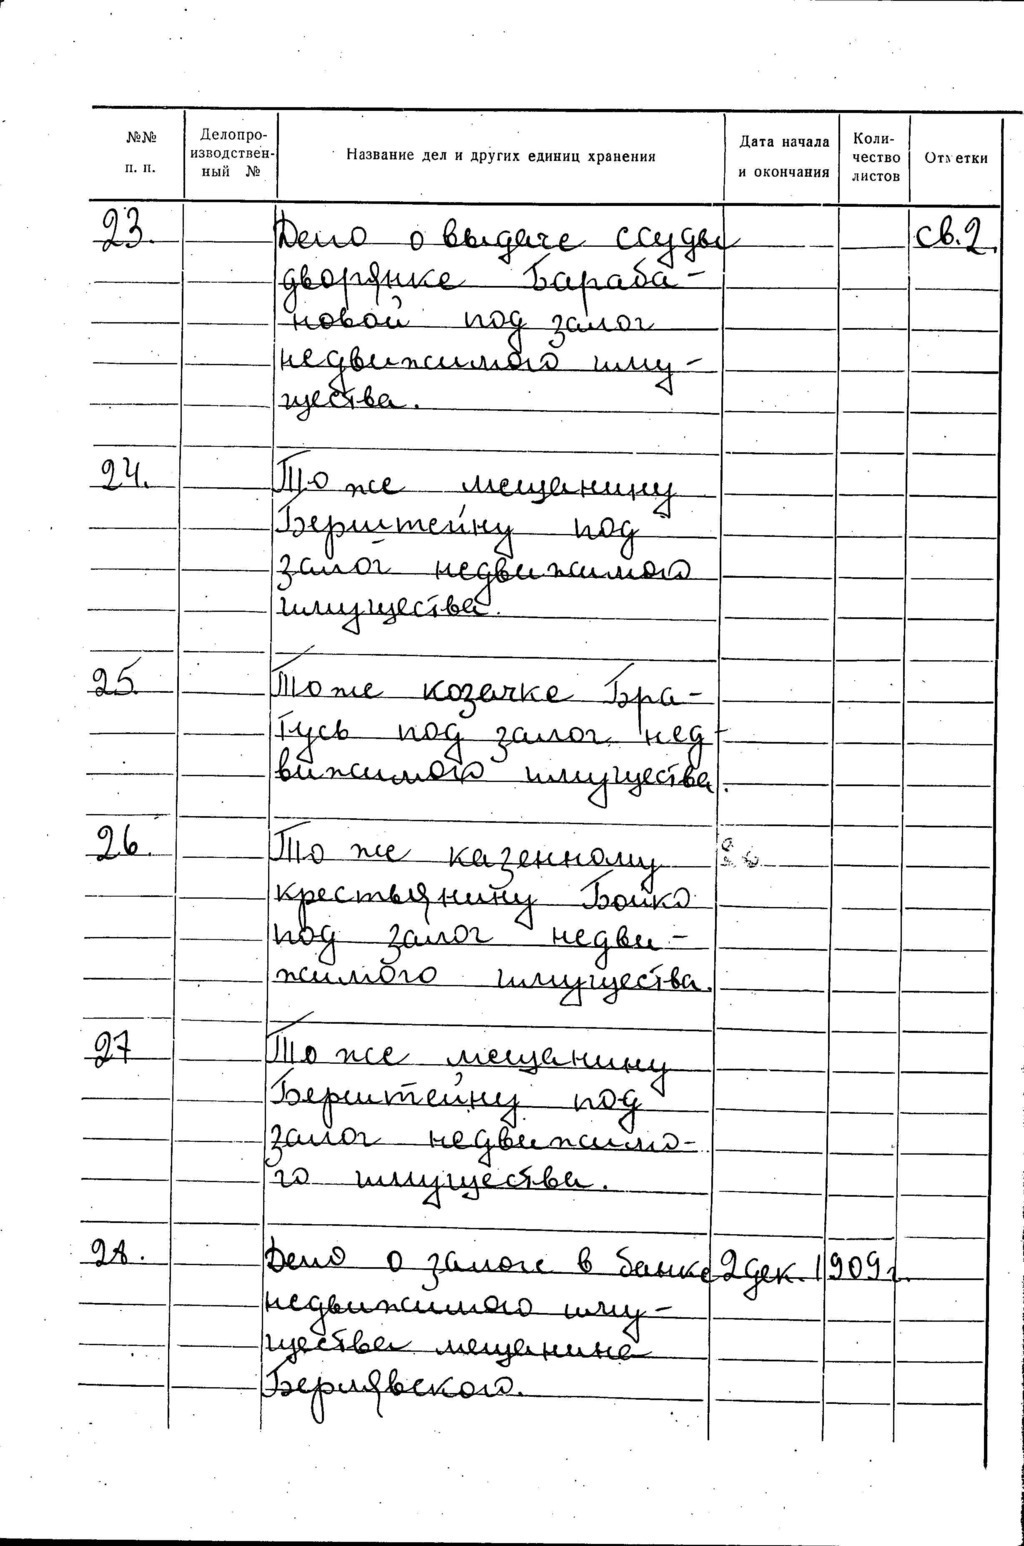 №№ п. п. Делопро- изводствен- ный № Название дел и других единиц хранения Дата начала и окончания Коли- чество листов От етки
23. Дело о выдаче ссуды св.2.
дворянке Бараба-
новой под залог
недвижимого иму-
щества.
24. То же мещанину
Берштейну под
залог недвижимого
имущества.
25. То же козачке Бра-
тусь под залог нед-
вижимого имущества.
26. То же казенному
крестьянину Бойко
под залог недви-
жимого имущества.
27 То же мещанину
Берштейну под
залог недвижимо-
го имущества.
28. Дело о залоге в банке 2 дек. 1909 г.
недвижимого иму-
щества мещанина
Берлявского.